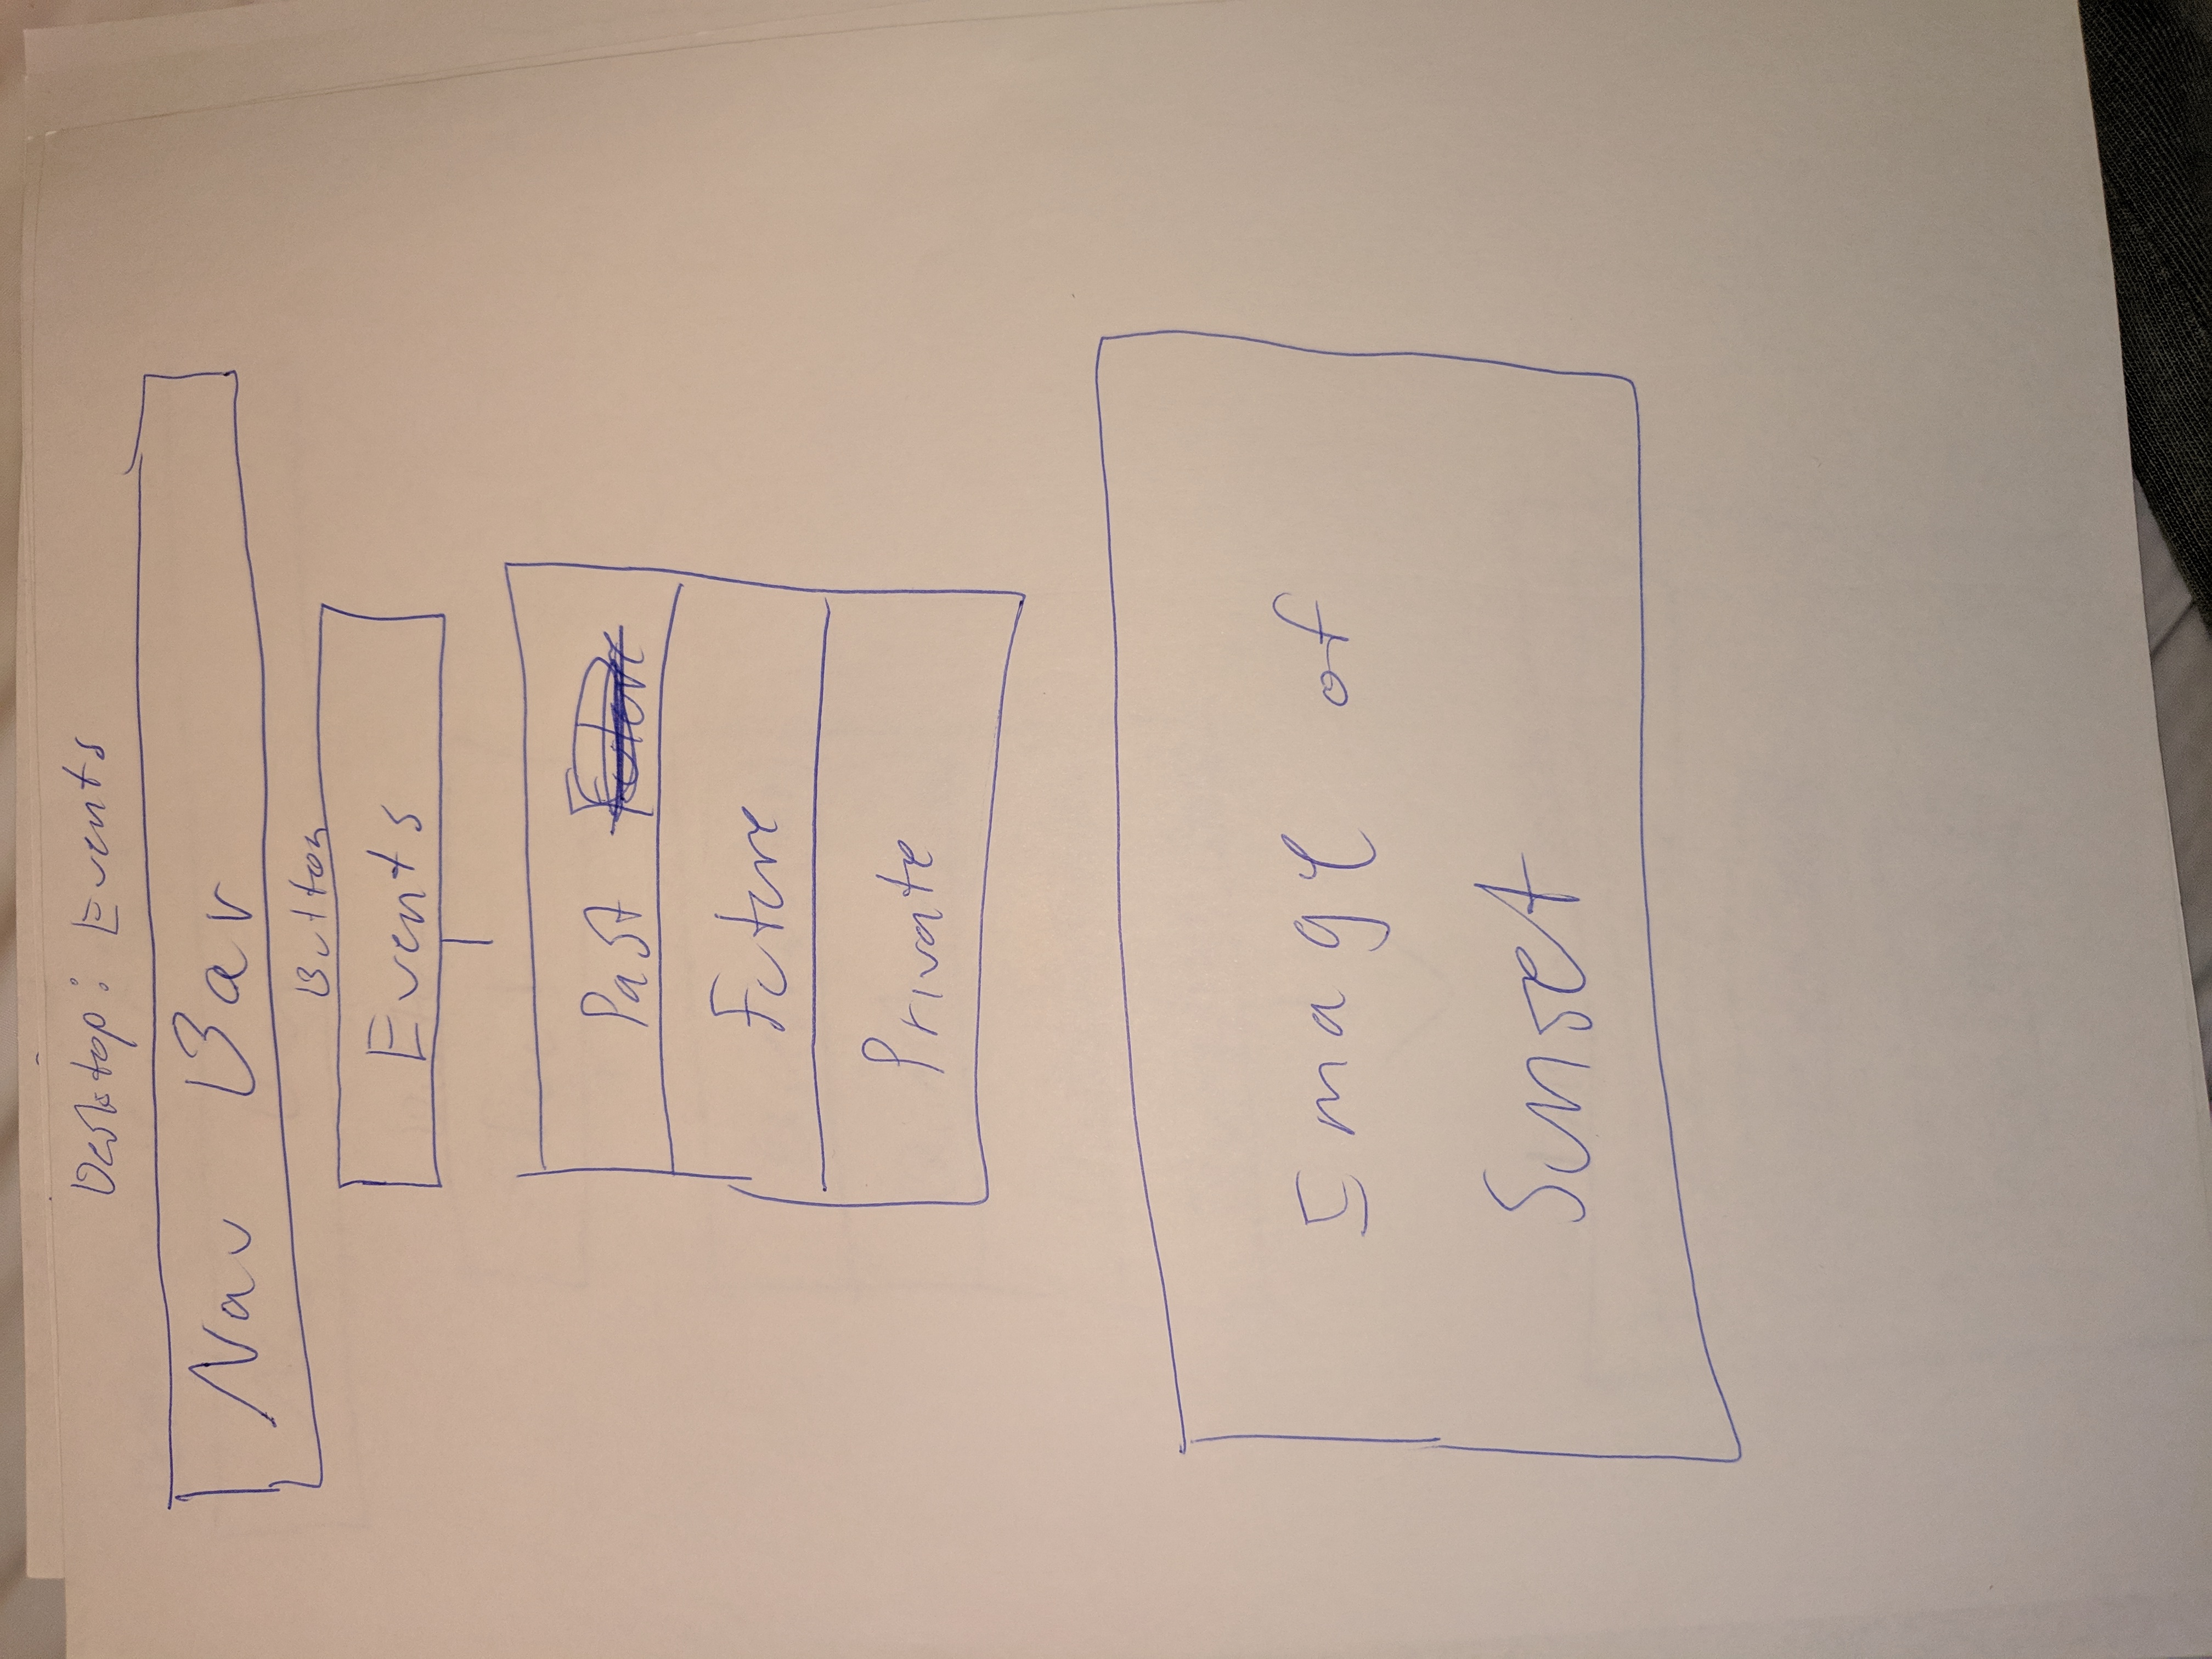 Desktop: Events
Nav Bar
Button
Events
Past
Future
Private
Image of
Sunset